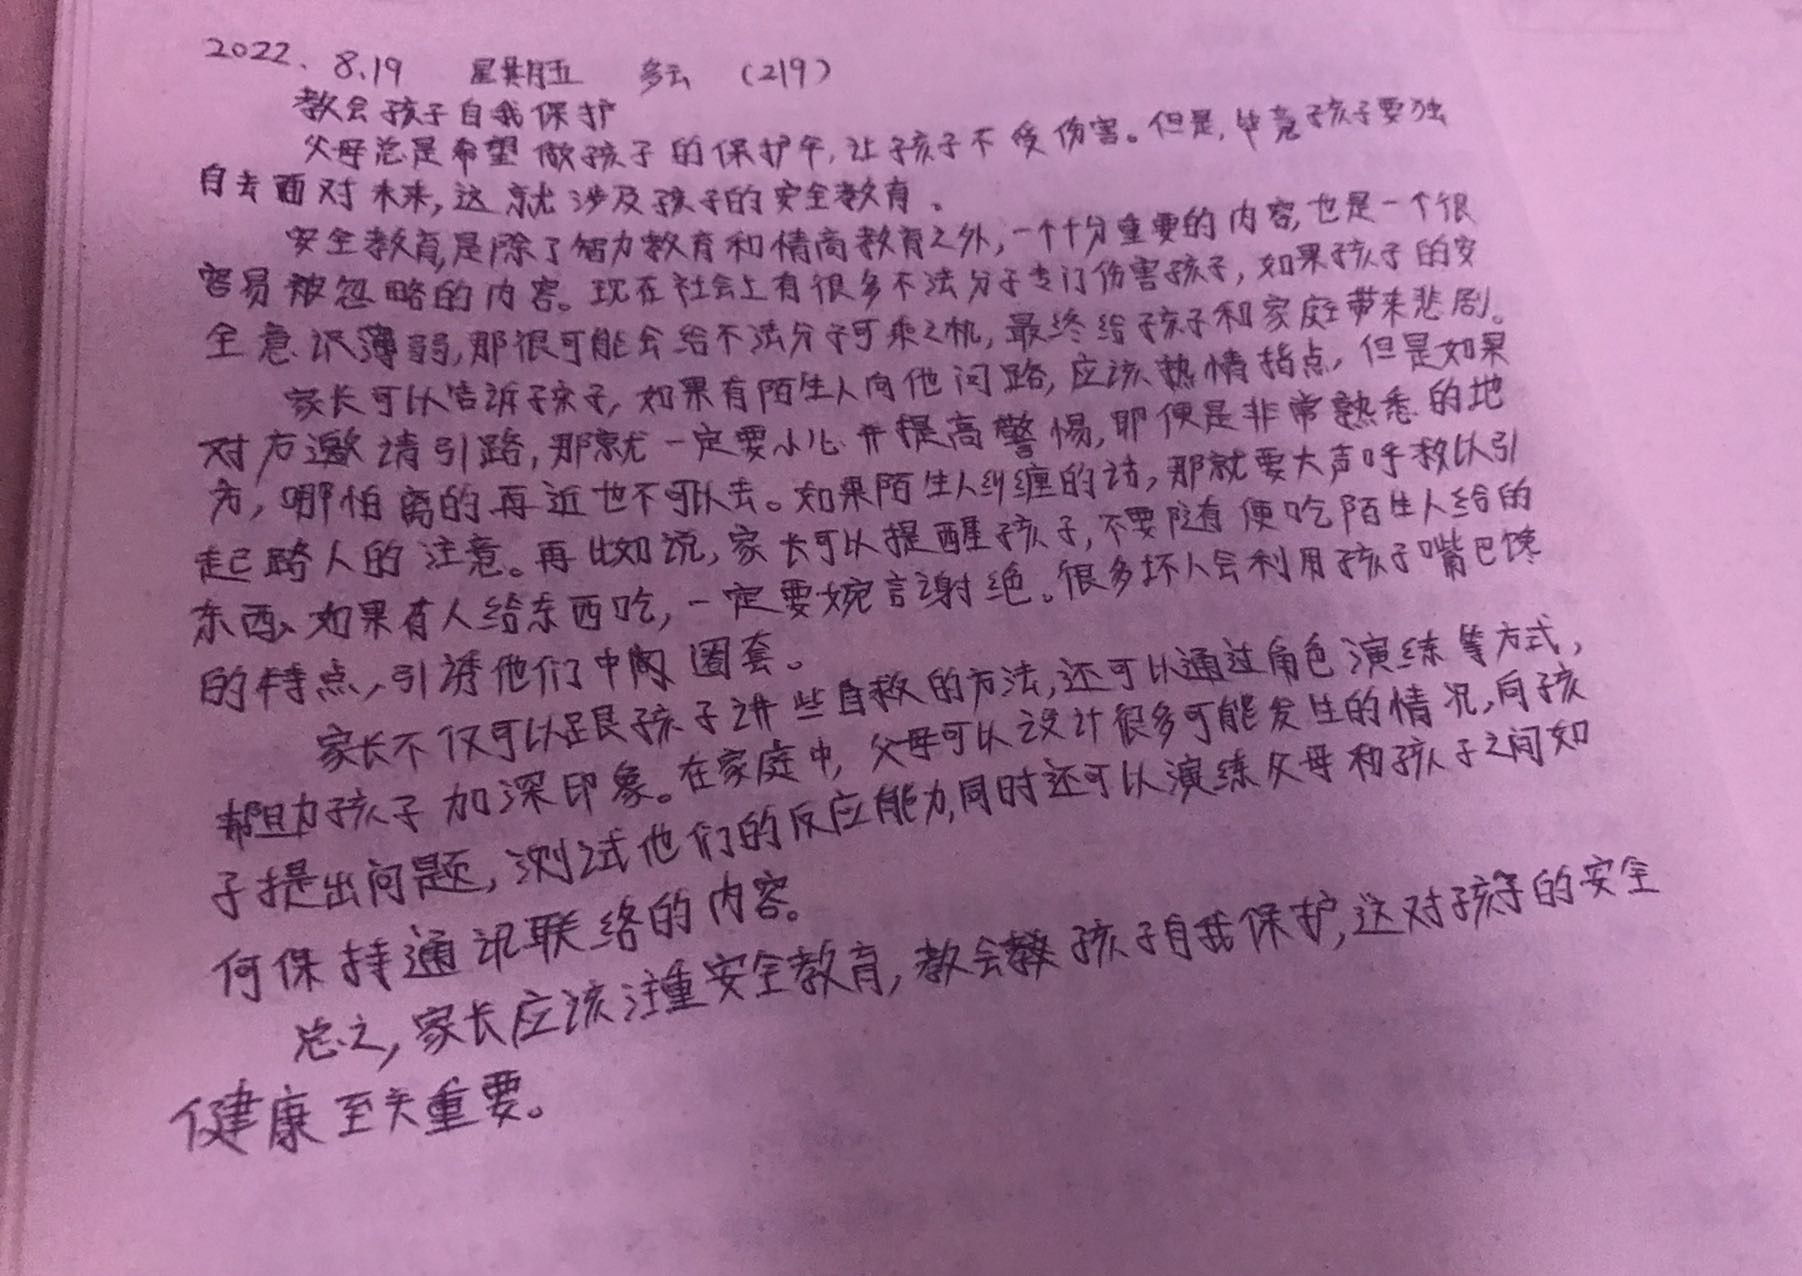 2022. 8.19 星期五 多云 (219)
教会孩子自我保护
父母总是希望做孩子的保护伞,让孩子不受伤害。但是,毕竟孩子要独
自去面对未来,这就涉及孩子的安全教育。
安全教育,是除了智力教育和情商教育之外,一个十分重要的内容,也是一个很
容易被忽略的内容。现在社会上有很多不法分子专门伤害孩子,如果孩子的安
全意识薄弱,那很可能会给不法分子可乘之机,最终给孩子和家庭带来悲剧。
家长可以告诉孩子,如果有陌生人向他问路,应该热情指点,但是如果
对方邀请引路,那就一定要小心并提高警惕,即便是非常熟悉的地
方,哪怕离的再近也不可以去。如果陌生人纠缠的话,那就要大声呼救以引
起路人的注意。再比如说,家长可以提醒孩子,不要随便吃陌生人给的
东西、如果有人给东西吃,一定要婉言谢绝。很多坏人会利用孩子嘴巴馋
的特点,引诱他们中圈套。
家长不仅可以跟孩子讲些自救的方法,还可以通过角色演练等方式,
帮助孩子加深印象。在家庭中,父母可以设计很多可能发生的情况,向孩
子提出问题,测试他们的反应能力,同时还可以演练父母和孩子之间如
何保持通讯联络的内容。
总之,家长应该注重安全教育,教会孩子自我保护,这对孩子的安全
健康至关重要。